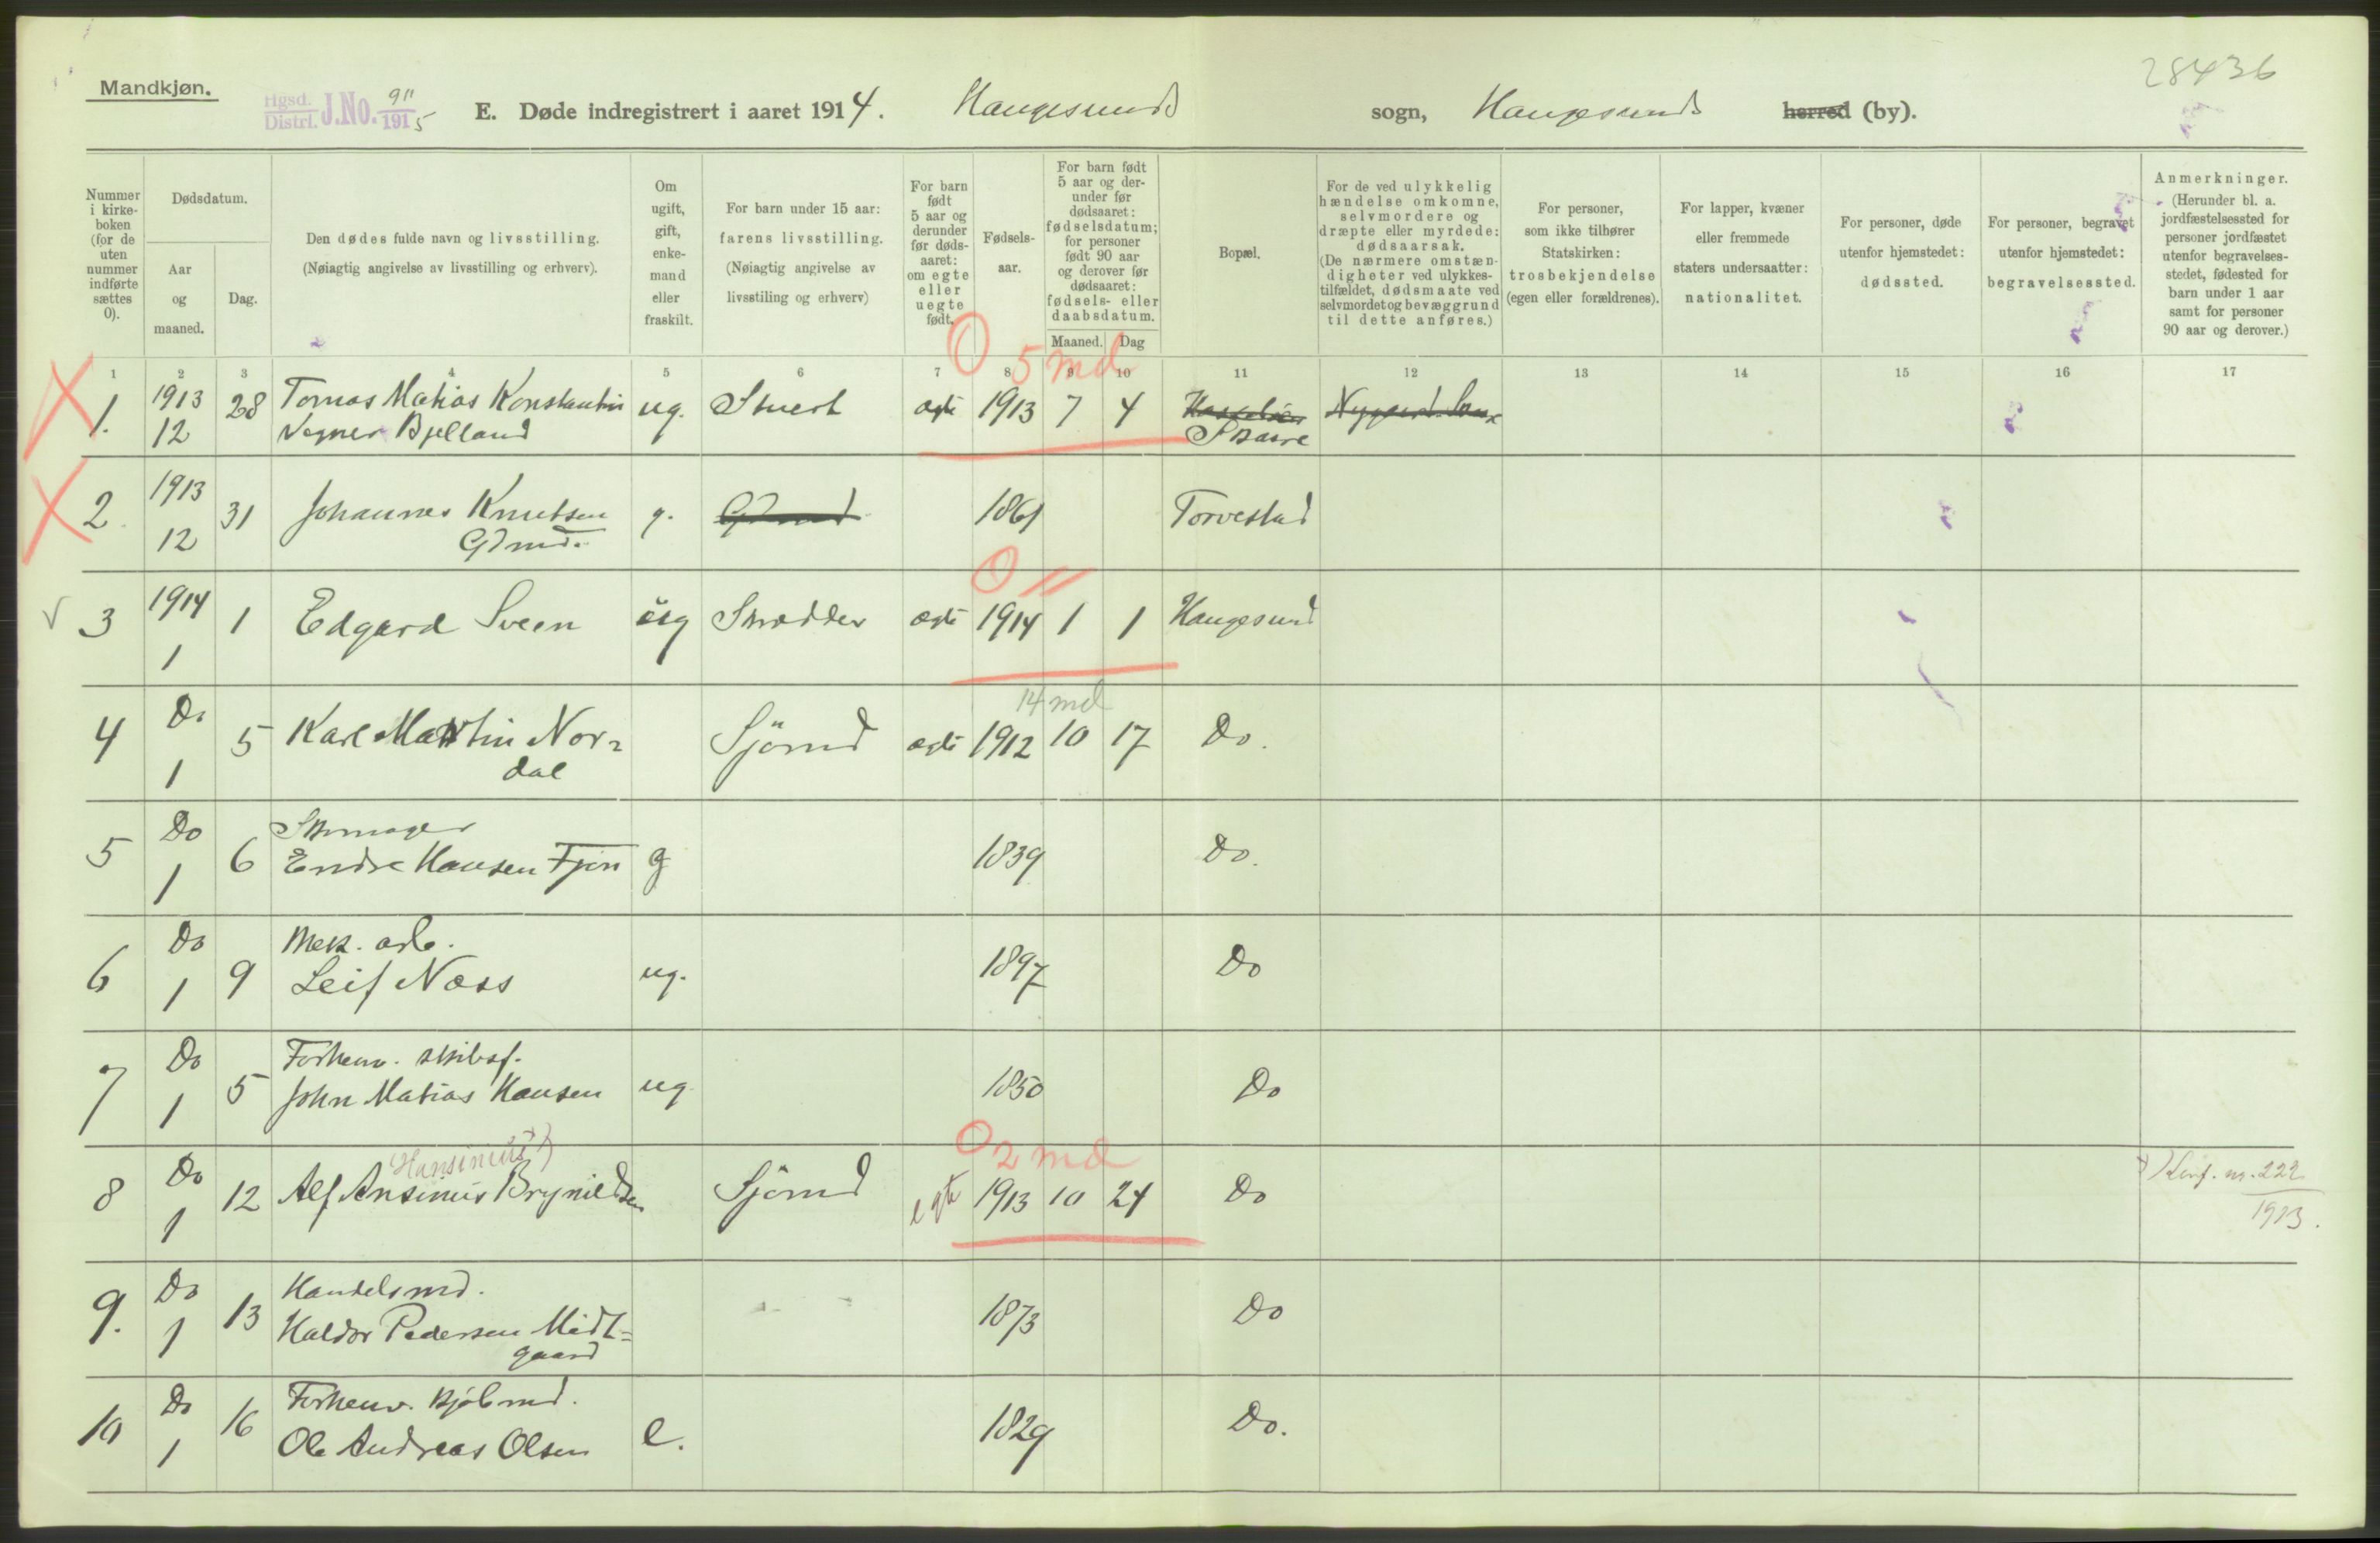 Mandkjøn.
Hgsd. Distri. J.No. 911/1915
E. Døde indregistrert i aaret 1914. Haugesunds sogn, Haugesunds herred (by).
28436
Nummer i kirke- boken (for de uten nummer indførte sættes 0).
Dødsdatum.
Aar og maaned.
Dag.
Den dødes fulde navn og livsstilling.
(Nøiagtig angivelse av livsstilling og erhverv).
Om ugift, gift, enke- mand eller fraskilt.
For barn under 15 aar: farens livsstilling.
(Nøiagtig angivelse av livsstiling og erhverv)
For barn født 5 aar og derunder før døds- aaret: om egte eller uegte født.
Fødsels- aar.
For barn født 5 aar og der- under før dødsaaret: fødselsdatum; for personer født 90 aar og derover før dødsaaret: fødsels- eller daabsdatum.
Maaned. Dag
Bopæl.
For de ved ulykkelig hændelse omkomne, selvmordere og dræpte eller myrdede: dødsaarsak.
(De nærmere omstæn- digheter ved ulykkes- tilfældet, dødsmaate ved selvmordet og bevæggrund til dette anføres.)
For personer, som ikke tilhører Statskirken: trosbekjendelse (egen eller forældrenes).
For lapper, kvæner eller fremmede staters undersaatter: nationalitet.
For personer, døde utenfor hjemstedet: dødssted.
For personer, begravet utenfor hjemstedet: begravelsessted.
Anmerkninger.
(Herunder bl. a. jordfæstelsessted for personer jordfæstet utenfor begravelses- stedet, fødested for barn under 1 aar samt for personer 90 aar og derover.)
1 2 3 4 5 6 7 8 9 10 11 12 13 14 15 16 17
0 5 md
1. 1913 12 28 Tomas Matias Konstantin ug. Stuert 1913 7 4
Vegner Bjelland Skaare
2. 1913 12 31 Johannes Knutsen g. 1861 Torvestad
Gdmd.
0 11
3 1914 1 1 Edgard Sveen ug Skrædder ægte 1914 1 1 Haugesund
14 md
4 Do 1 5 Karl Martin Nor- Sjömd ægte 1912 10 17 Do.
dal
5 Do 1 6 Skomager
Endre Hansen Fjon g 1839 Do.
6 Do 1 9 Mek. arb.
Leif Næss ug. 1897 Do
7 Do 1 5 Forhenv. skibsf.
John Matias Hansen ug 1850 Do
Hansinius
0 2 md
8 Do 1 12 Alf Ansinius Brynildsen Sjömd egte 1913 10 24 Do
nr. 222
1913.
9. Do 1 13 Handelsmd.
Haldor Pedersen Midt- 1873 Do
gaard
10 Do 1 16 Forhenv. kjöbmd.
Ole Andreas Olsen e. 1829 Do.